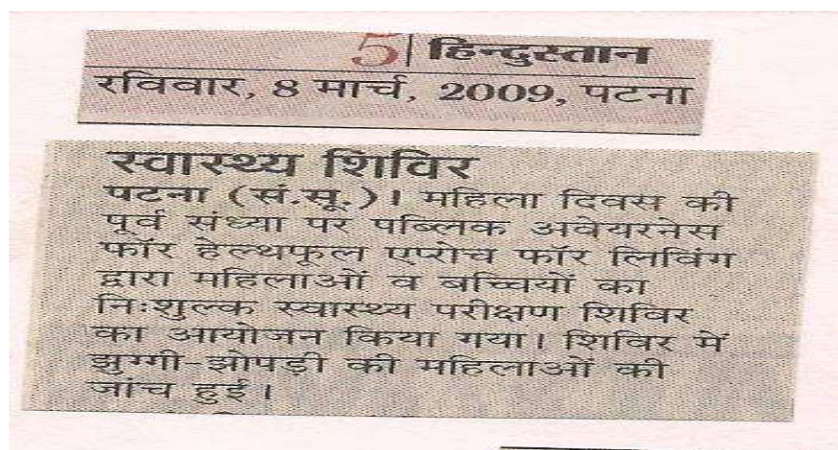 5 | हिन्दुस्तान
रविवार, 8 मार्च, 2009, पटना
स्वास्थ्य शिविर
पटना (सं.सू.)। महिला दिवस की
पूर्व संध्या पर पब्लिक अवेयरनेस
फॉर हेल्थफूल एप्रोच फॉर लिविंग
द्वारा महिलाओं व बच्चियों का
निःशुल्क स्वास्थ्य परीक्षण शिविर
का आयोजन किया गया। शिविर में
झुग्गी-झोपड़ी की महिलाओं की
जांच हुई।